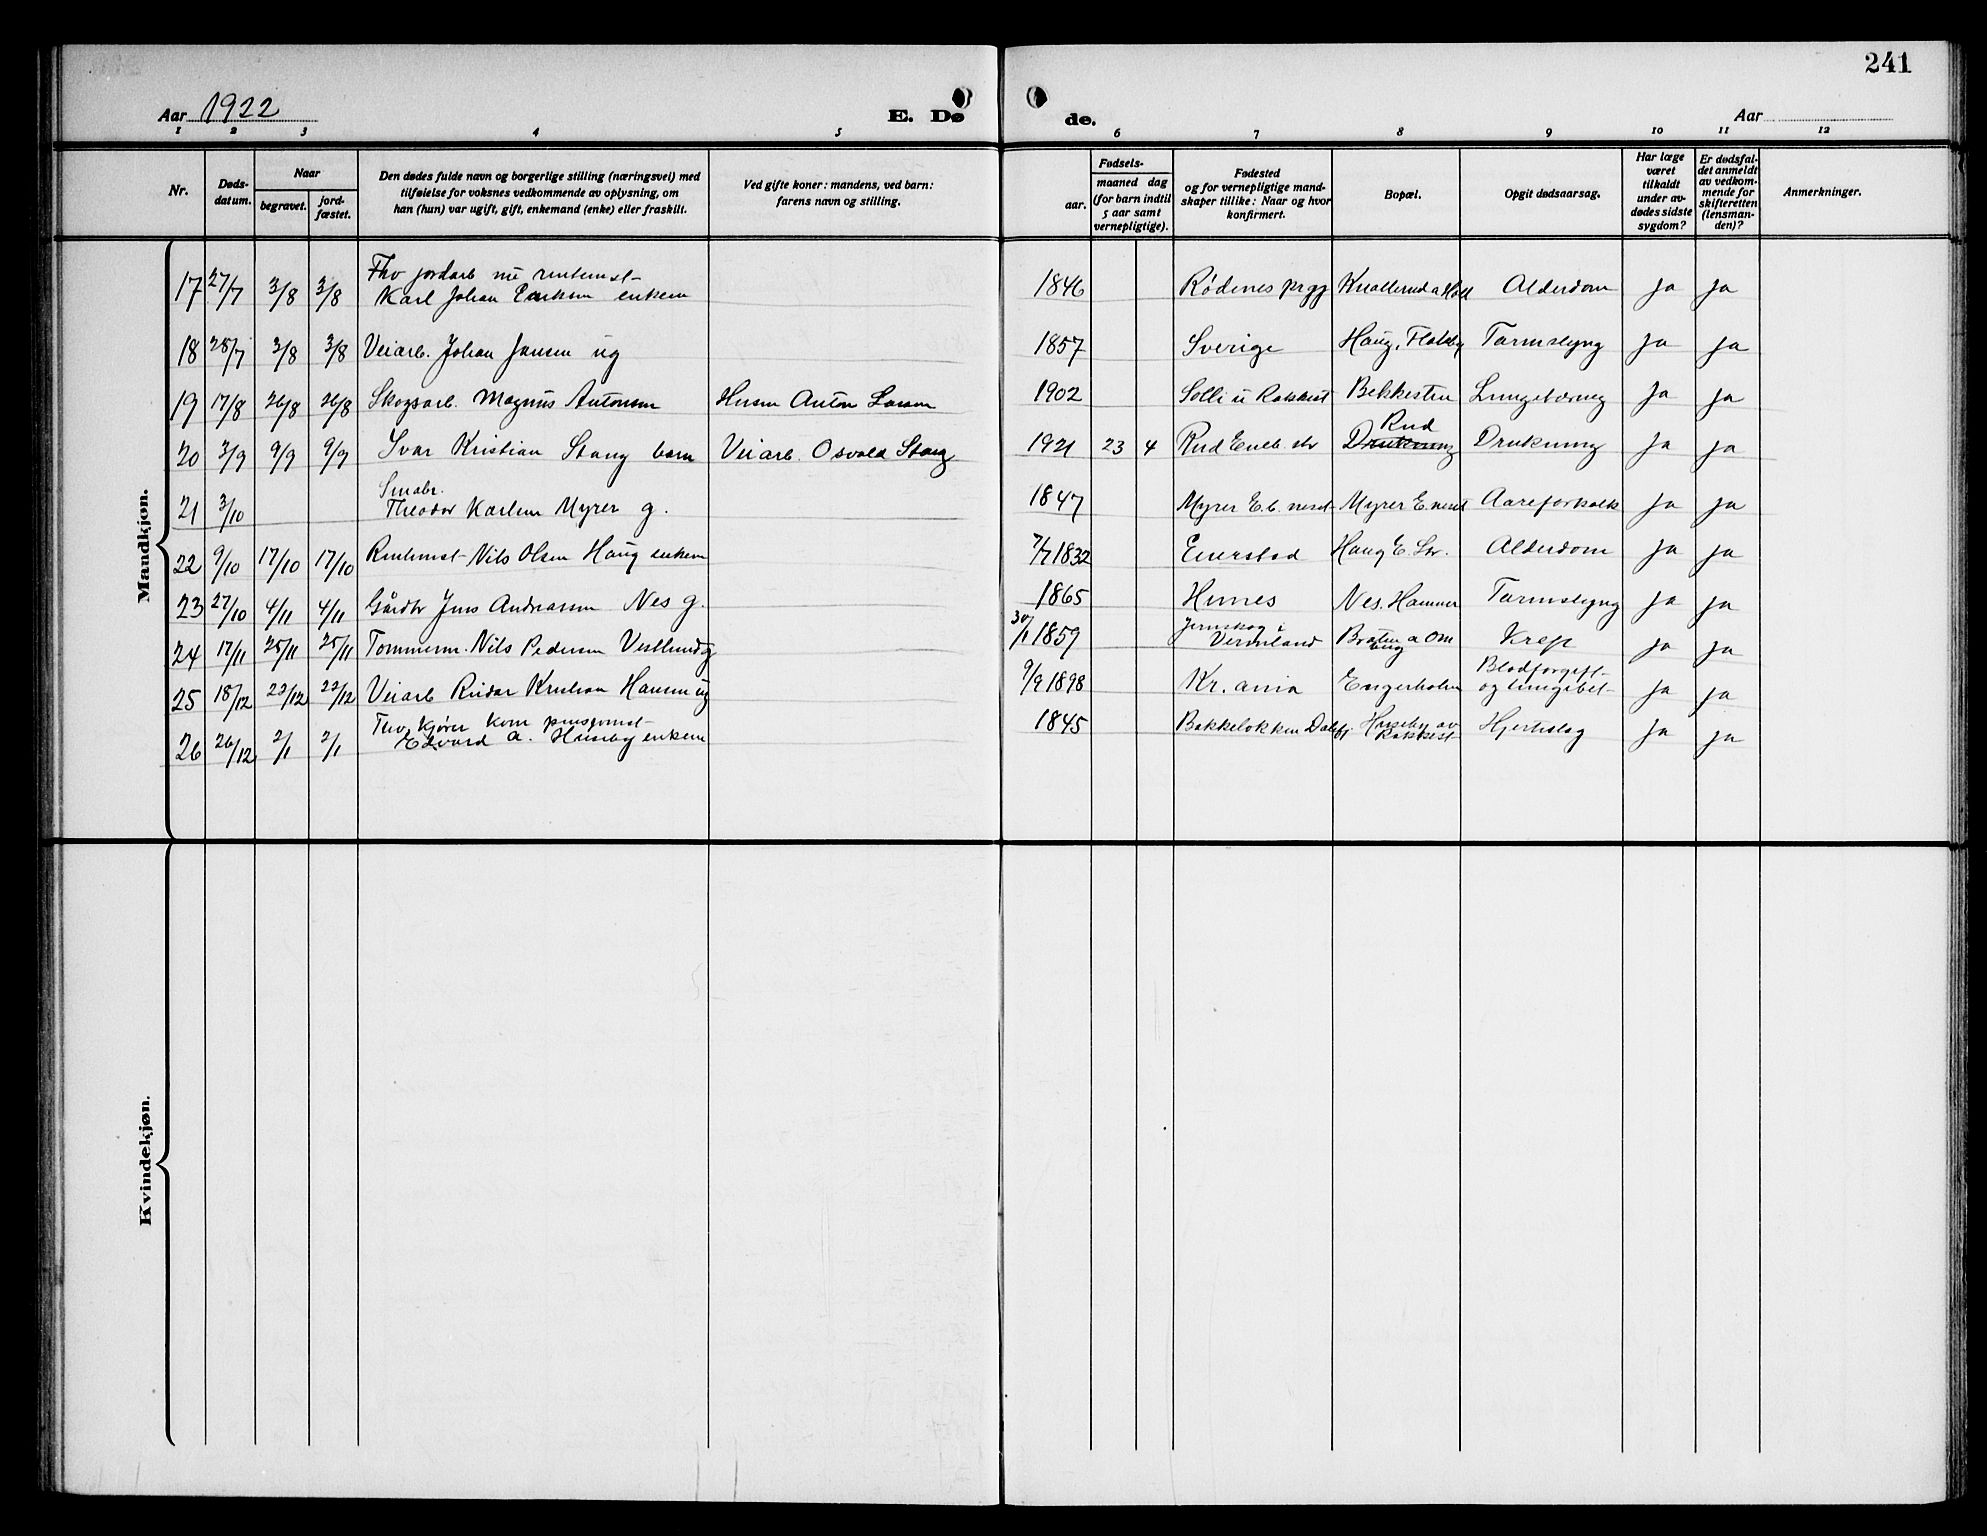 241
Aar 1922
E. Dø
de.
Aar
1 2 3 4 5 6 7 8 9 10 11 12
Nr.
Døds-
datum.
Naar
begravet.
jord-
fæstet.
Den dødes fulde navn og borgerlige stilling (næringsvei) med
tilføielse for voksnes vedkommende av oplysning, om
han (hun) var ugift, gift, enkemand (enke) eller fraskilt.
Ved gifte koner: mandens, ved barn:
farens navn og stilling.
Fødsels-
aar.
maaned dag
(for barn indtil
5 aar samt
vernepligtige).
Fødested
og for vernepligtige mand-
skaper tillike: Naar og hvor
konfirmert.
Bopæl.
Opgit dødsaarsag.
Har læge
været
tilkaldt
under av-
dødes sidste
sygdom?
Er dødsfal-
det anmeldt
av vedkom-
mende for
skifteretten
(lensman-
den)?
Anmerkninger.
Mandkjøn.
Fhv jordarb
17 27/7 3/8 3/8 Karl Johan enkem 1846 Rødenes prgj Alderdom Ja Ja
18 28/7 3/8 3/8 Veiarb. Johan Jansen ug 1857 Sverige Haug, Tarmslyng Ja Ja
19 17/8 26/8 26/8 Skogsarb. Magnus Antonsen Husm Anton Larsen 1902 Solli u Rakkest Bekkesten Ja Ja
Rud
20 3/9 9/9 9/9 Ivar Kristian Stang barn Veiarb. Osvald Stang 1921 23 4 Rud Drukning Drukning Ja Ja
Smabr.
21 3/10 Theodor Karlsen Myrer g. 1847 Myrer E.b. nesset Myrer E. nesset Aareforkalk Ja Ja
22 9/10 17/10 17/10 Rentenist Nils Olsen Haug enkem 7/7 1832 Haug Alderdom Ja Ja
23 27/10 4/11 4/11 Gårdbr Jens Andreassen Nes g. 1865 Nes. Hammer Tarmslyng Ja Ja
Jernskog i
24 17/11 25/11 25/11 Tømmerm. Nils Pedersen 30/1 1859 Vermland Kreft Ja Ja
Blodforgift-
25 18/12 22/12 22/12 Veiarb Reidar Kristian Hansen ug 9/9 1898 Kr.ania Engerholm og lungebet- Ja Ja
Fhv. kjører
26 26/12 2/1 2/1 Edvard A. Huseby enkem 1845 Bakkeløkken Huseby av Rakkest Hjerteslag Ja Ja
Kvindekjøn.